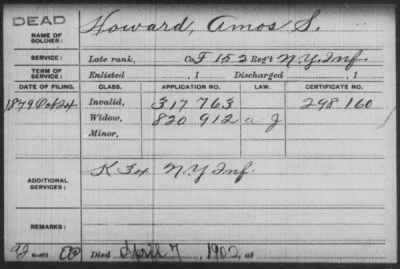 DEAD
NAME OF SOLDIER: Howard, Amos S.
SERVICE: Late rank, Co F 152 Reg't N.Y. Inf.
TERM OF SERVICE: Enlisted , 1 Discharged , 1
DATE OF FILING. CLASS. APPLICATION NO. LAW. CERTIFICATE NO.
1879 Oct 24 Invalid, 317 763 298 160
Widow, 820 912
Minor,
ADDITIONAL SERVICES: K 34 N.Y. Inf.
REMARKS:
Died April 7, 1902, at